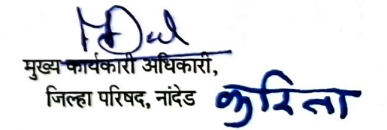 मुख्य कार्यकारी अधिकारी,
जिल्हा परिषद, नांदेड करिता